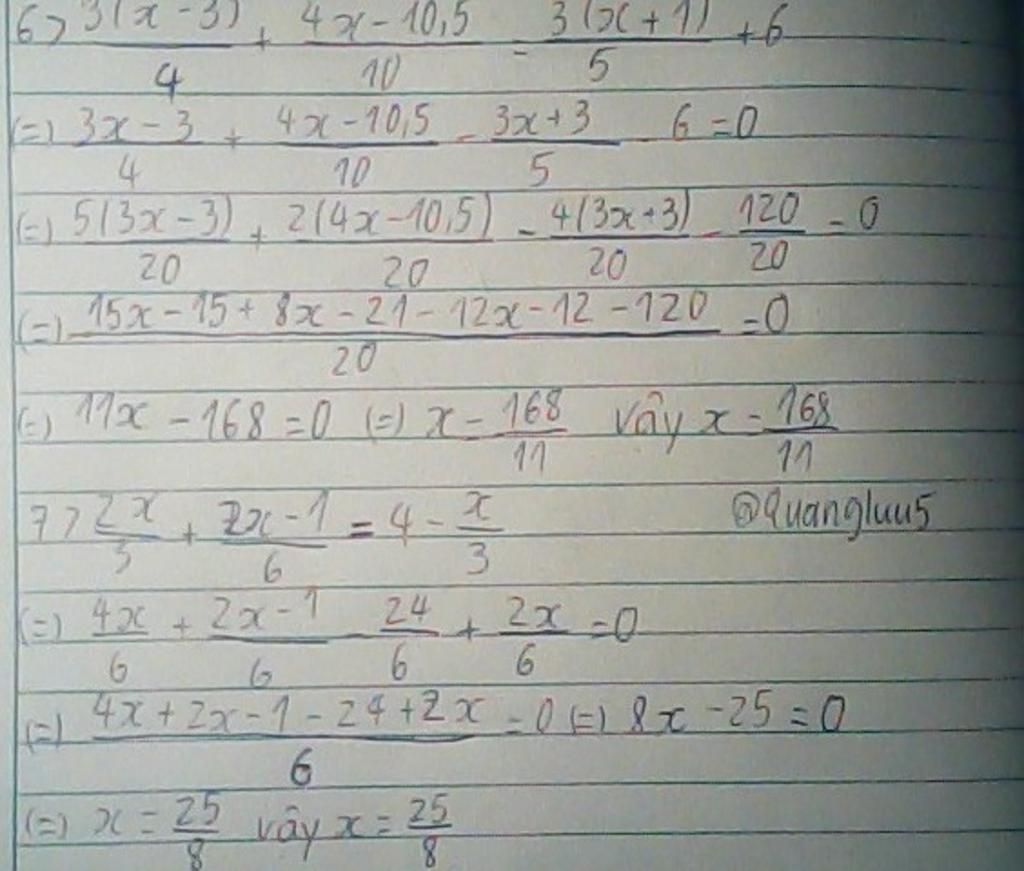 6> 3(x-3)/4 + 4x-10,5/10 = 3(x+1)/5 +6
(=) 3x-3/4 + 4x-10,5/10 - 3x+3/5 - 6 =0
(=) 5(3x-3)/20 + 2(4x-10,5)/20 - 4(3x+3)/20 - 120/20 = 0
(=) 15x-15+8x-21-12x-12-120/20 =0
(=) 11x-168=0 (=) x = 168/11 vây x = 168/11
7> 2x/3 + 2x-1/6 = 4 - x/3 @Quangluu5
(=) 4x/6 + 2x-1/6 - 24/6 + 2x/6 =0
(=) 4x+2x-1-24+2x/6 = 0 (=) 8x-25=0
(=) x = 25/8 vây x = 25/8